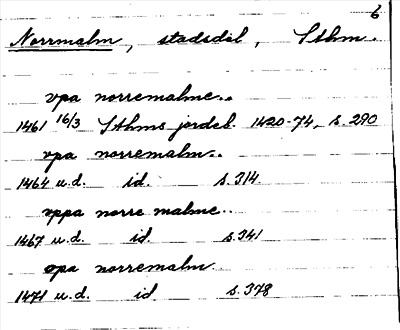 6
Norrmalm, stadsdel, Sthm.
vpa norremalme..
1461 16/3 Sthms jordeb. 1420-74, s. 290
vpa norremalm..
1464 u.d. id. s. 314
vppa norre malme..
1467 u.d. id. s. 341
vpa norremalm
1471 u.d. id s. 378